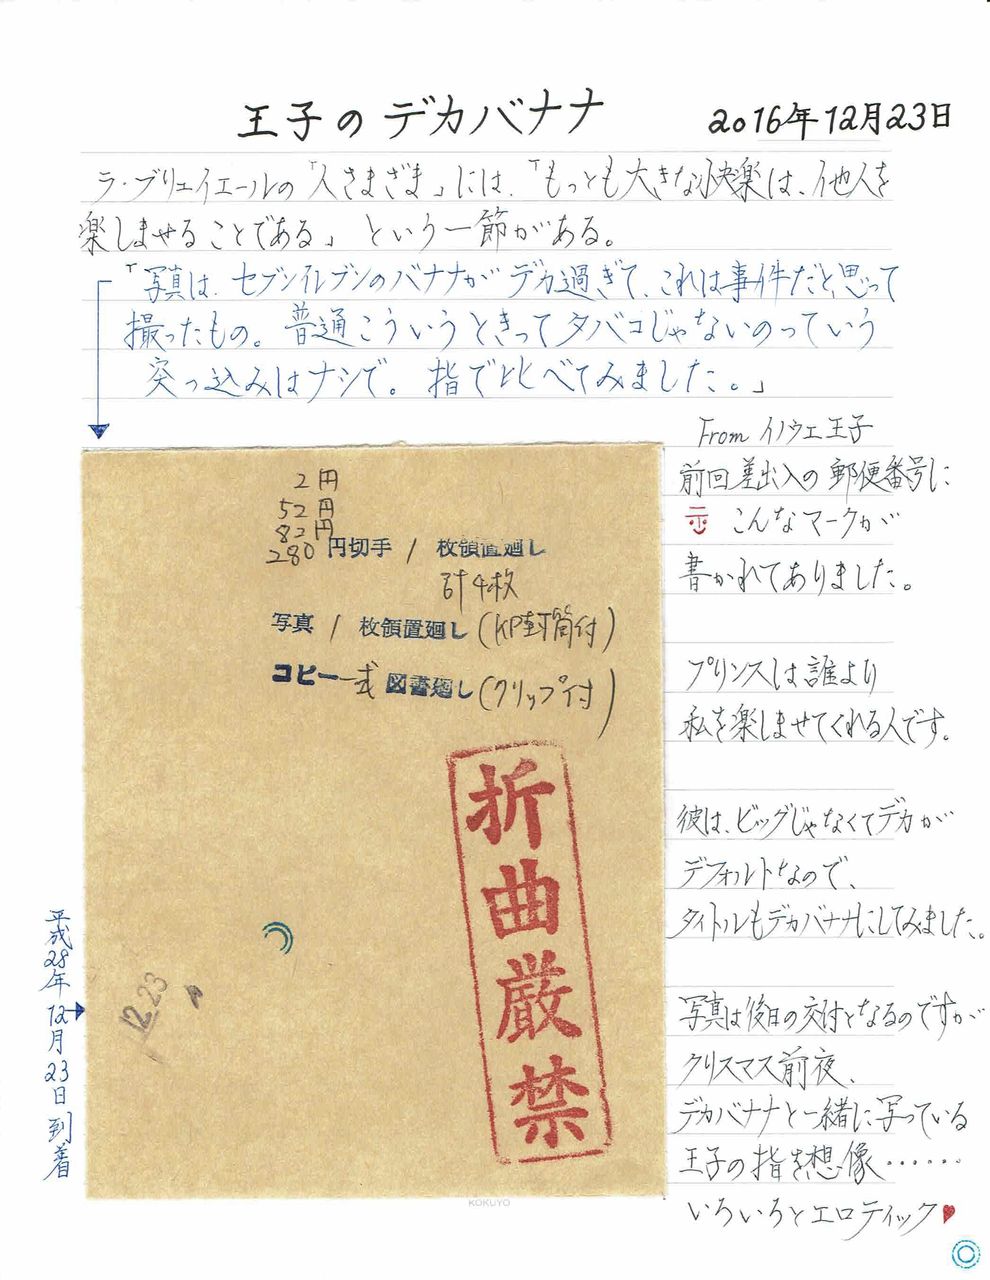 王子のデカバナナ
2016年12月23日
ラ・ブリュイエールの「人さまざま」には、「もっとも大きな快楽は、他人を
楽しませることである」という一節がある。
「写真は、セブンイレブンのバナナがデカ過ぎて、これは事件だと思って
撮ったもの。普通こういうときってタバコじゃないのっていう
突っ込みはナシで。指で比べてみました。」
From イノウエ王子
前回差出人の郵便番号に
こんなマークが
書かれてありました。
プリンスは誰より
私を楽しませてくれる人です。
彼は、ビッグじゃなくてデカが
デフォルトなので、
タイトルもデカバナナにしてみました。
写真は後日の交付となるのですが
クリスマス前夜、
デカバナナと一緒に写っている
王子の指を想像……
いろいろとエロティック♥
2円
52円
82円
280円切手 / 枚領置廻し
計4枚
写真 / 枚領置廻し(KP封筒付)
コピー一式 図書廻し(クリップ付)
折曲厳禁
12.23
平成28年12月23日到着
KOKUYO